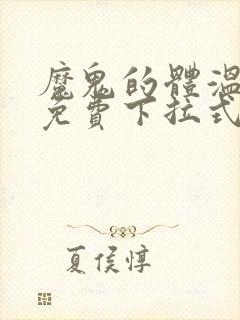 魔鬼的體溫
免費下拉式
夏侯惇